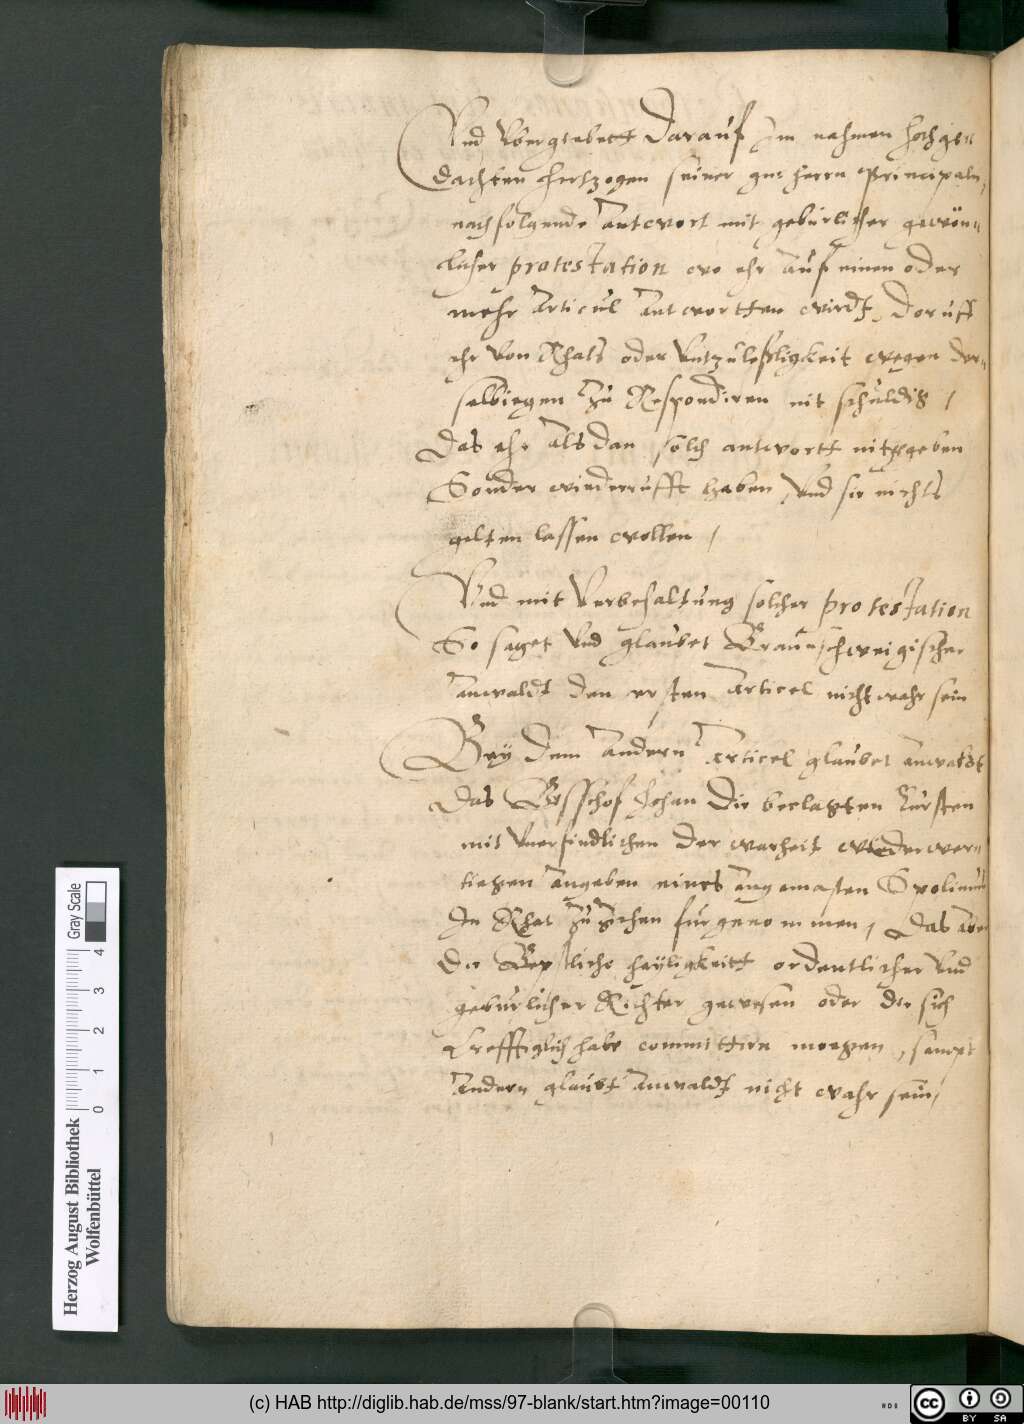 Und Ubergiebett darauf Im nahmen hochge=
dachten hertzogen seiner gn: herrn Principaln,
nachfolgende Antwort mit geburlicher gewön=
licher protestation wo ehr Auf einen oder
mehr Articul Antwortten wirdt, Doruff
ehr von Rhats oder Untzuleßligkeit wegen der=
selbiegen Zu Respondiren nit schuldig /
Das ehr Alsdan solch antwortt nit gegeben
Sonder wiederrufft haben, Und sie nichts
gelten lassen wollen /
Und mit Vorbehaltung solcher protestation
So saget Und glaubet Braunschweigischer
Anwaldt den ersten Articel nicht wahr sein
Bey dem Andern Articel glaubet Anwaldt
Das Bisschof Johan Die beclagten Fursten
mit Unerfindtlichen der warheit wiederwer=
tiegen Angeben eines Angemasten Spolium
In Rhat Zu Ziehen furgenommen, Das Aber
Die Bepstliche heyligkeitt ordentlicher Und
geburlicher Richter gewesen oder die sich
Crefftiglich habe committirn moegen, sampt
Andern glaubt Anwaldt nicht wahr sein /
Gray Scale
0 1 2 3 4
Herzog August Bibliothek
Wolfenbüttel
(c) HAB http://diglib.hab.de/mss/97-blank/start.htm?image=00110
cc BY SA